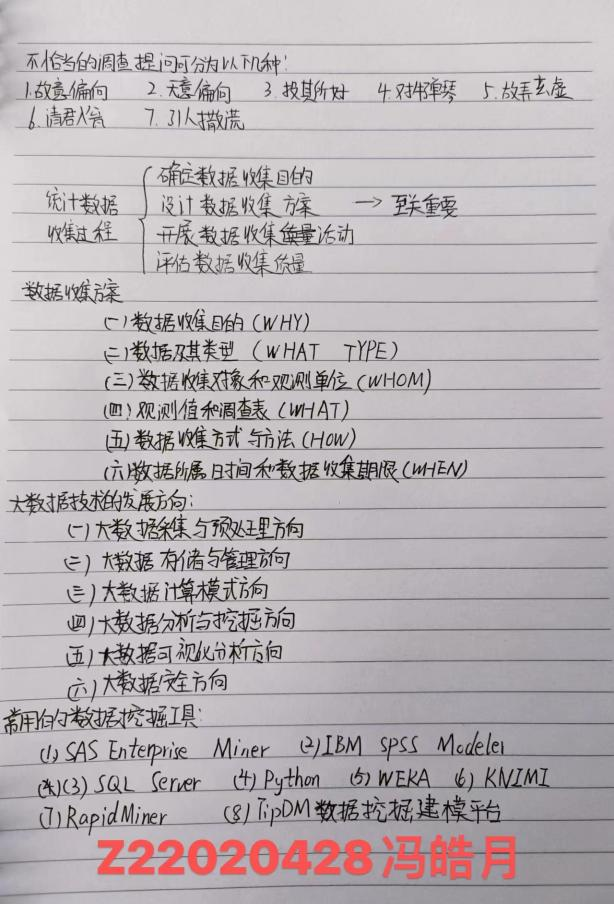 不恰当的调查提问可分为以下几种:
1.故意偏向 2.无意偏向 3.投其所好 4.对牛弹琴 5.故弄玄虚
6.请君入瓮 7.引人撒谎
统计数据
收集过程
确定数据收集目的
设计数据收集方案 → 至关重要
开展数据收集活动
评估数据收集质量
数据收集方案
(一)数据收集目的(WHY)
(二)数据及其类型(WHAT TYPE)
(三)数据收集对象和观测单位(WHOM)
(四)观测值和调查表(WHAT)
(五)数据收集方式与方法(HOW)
(六)数据所属时间和数据收集期限(WHEN)
大数据技术的发展方向:
(一)大数据采集与预处理方向
(二)大数据存储与管理方向
(三)大数据计算模式方向
(四)大数据分析与挖掘方向
(五)大数据可视化分析方向
(六)大数据安全方向
常用的数据挖掘工具:
(1) SAS Enterprise Miner (2) IBM SPSS Modeler
(3) SQL Server (4) Python (5) WEKA (6) KNIMI
(7) RapidMiner (8) TipDM数据挖掘建模平台
Z22020428冯皓月